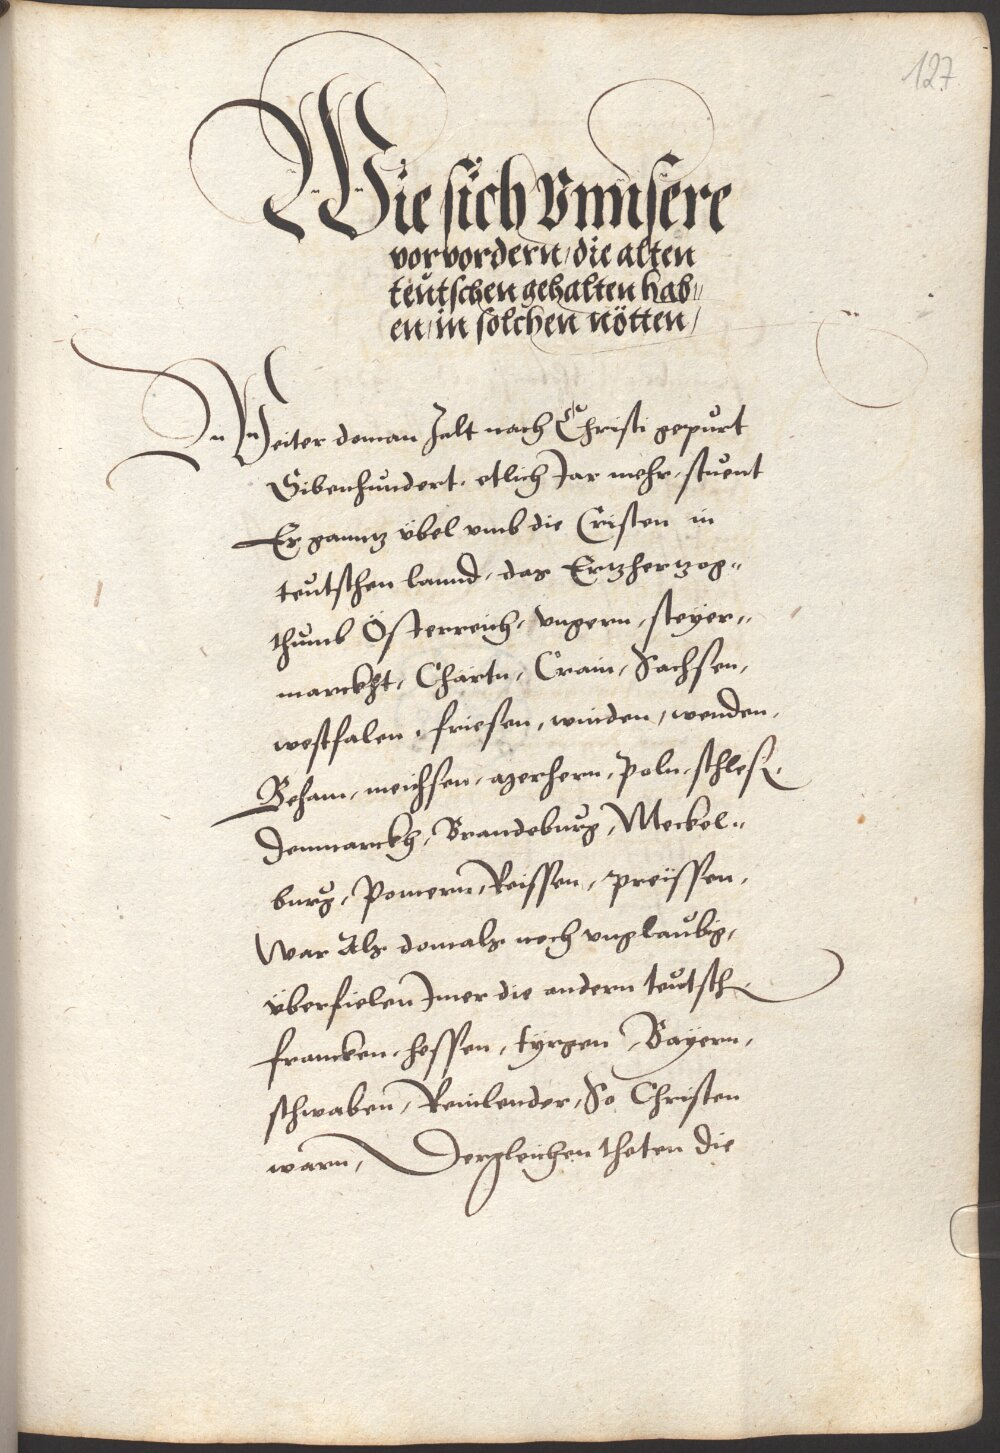 127
Wie sich Vnnsere
vorvordern/die alten
teütschen gehalten hab„
en/in solchen nötten/
Weiter doman Zalt nach Christi gepurt
Sibenhundert. etlich Jar mehr. stuent
Er ganntz übel vmb die Cristen in
teutschen lannd, das Ertzhertzog„
thumb Österreich, vngern, steyer„
marckht, Chärtn, Crain, Sachsen,
westfalen, friesen, winden, wenden,
Beham, meichsen, merhern, poln, schles,
Denmarckh, Brandeburg, Meckel„
burg, Pomern, Reissen, preissen,
War Als domals noch vnglaubig,
überfielen Imer die andern teutsch,
francken, hessen, tyrgen, Bayern,
schwaben, Reinlender, So Christen
warn, Dergleichen theten die